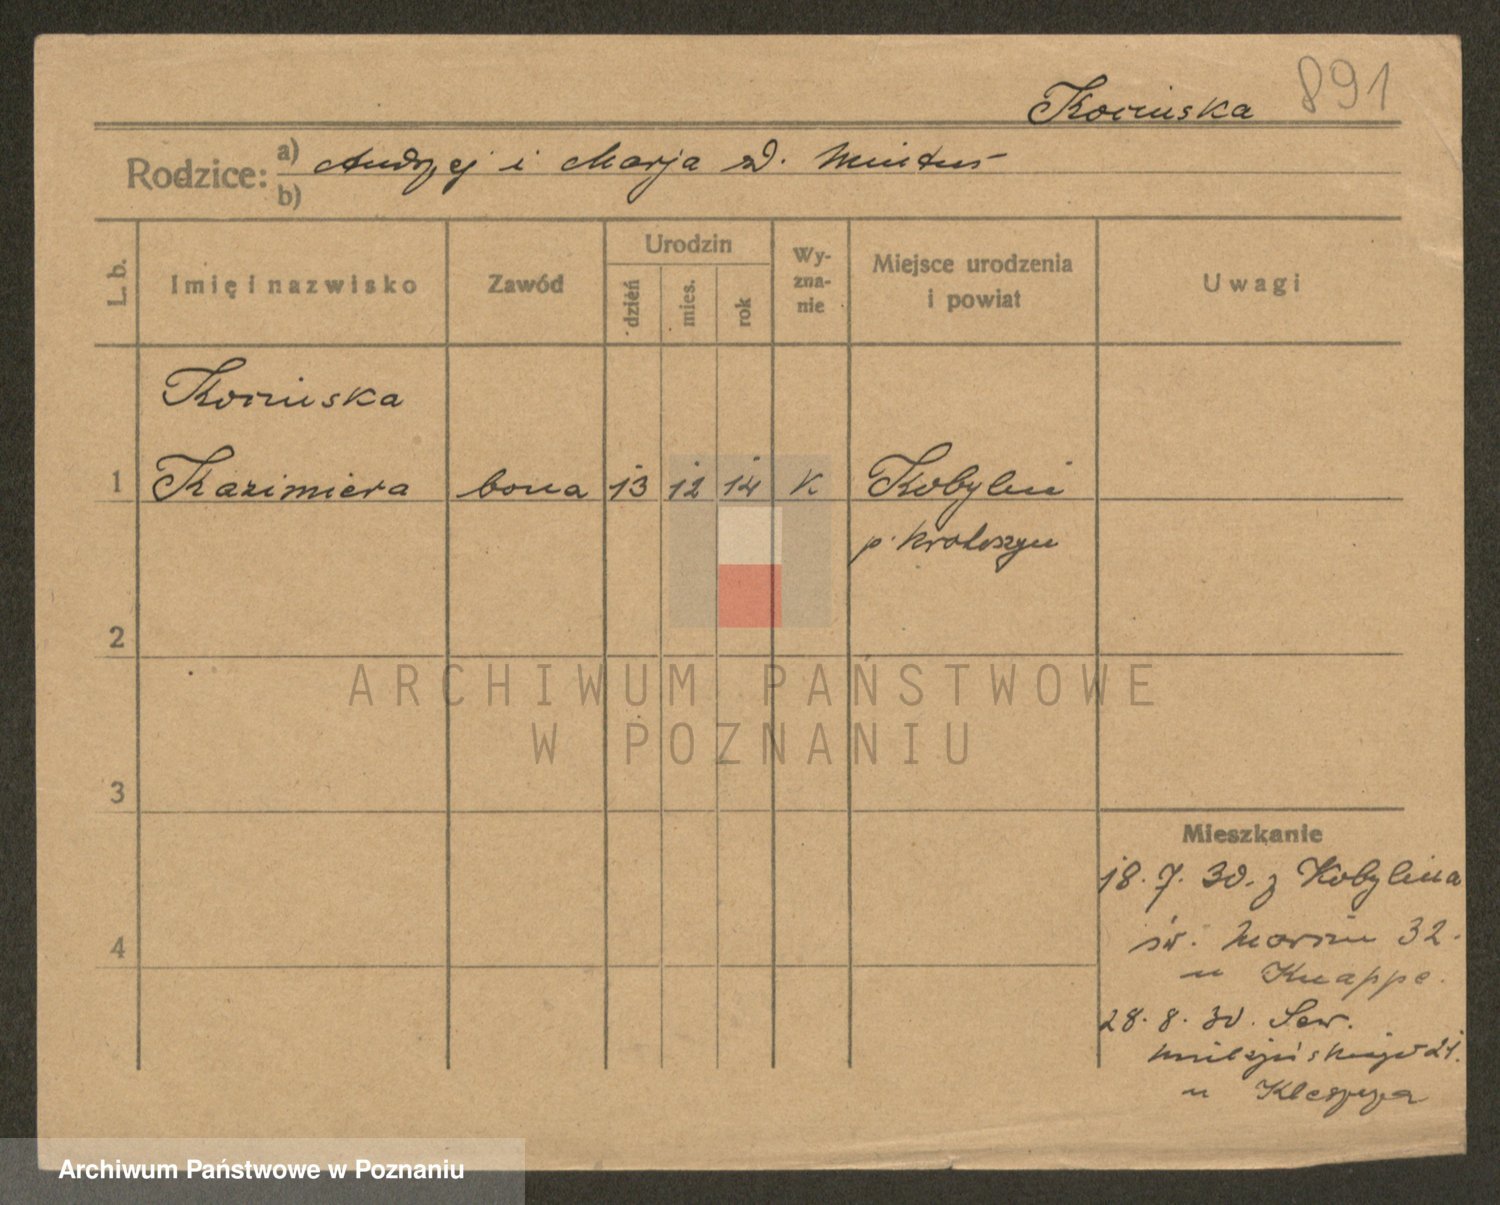 891
Kocińska
Rodzice:
a) Andrzej i Marja zd. Mintus
b)
L. b.
Imię i nazwisko
Zawód
Urodzin
dzień
mies.
rok
Wy-
zna-
nie
Miejsce urodzenia
i powiat
Uwagi
Kocińska
1 Kazimiera bona 13 12 14 K Kobylin
p. Krotoszyn
2
3
4
Mieszkanie
18. 7. 30. z Kobylina
św. Marcin 32.
u Knappe.
28. 8. 30. Sew.
Mielżyńskiego 21.
u
ARCHIWUM PAŃSTWOWE
W POZNANIU
Archiwum Państwowe w Poznaniu